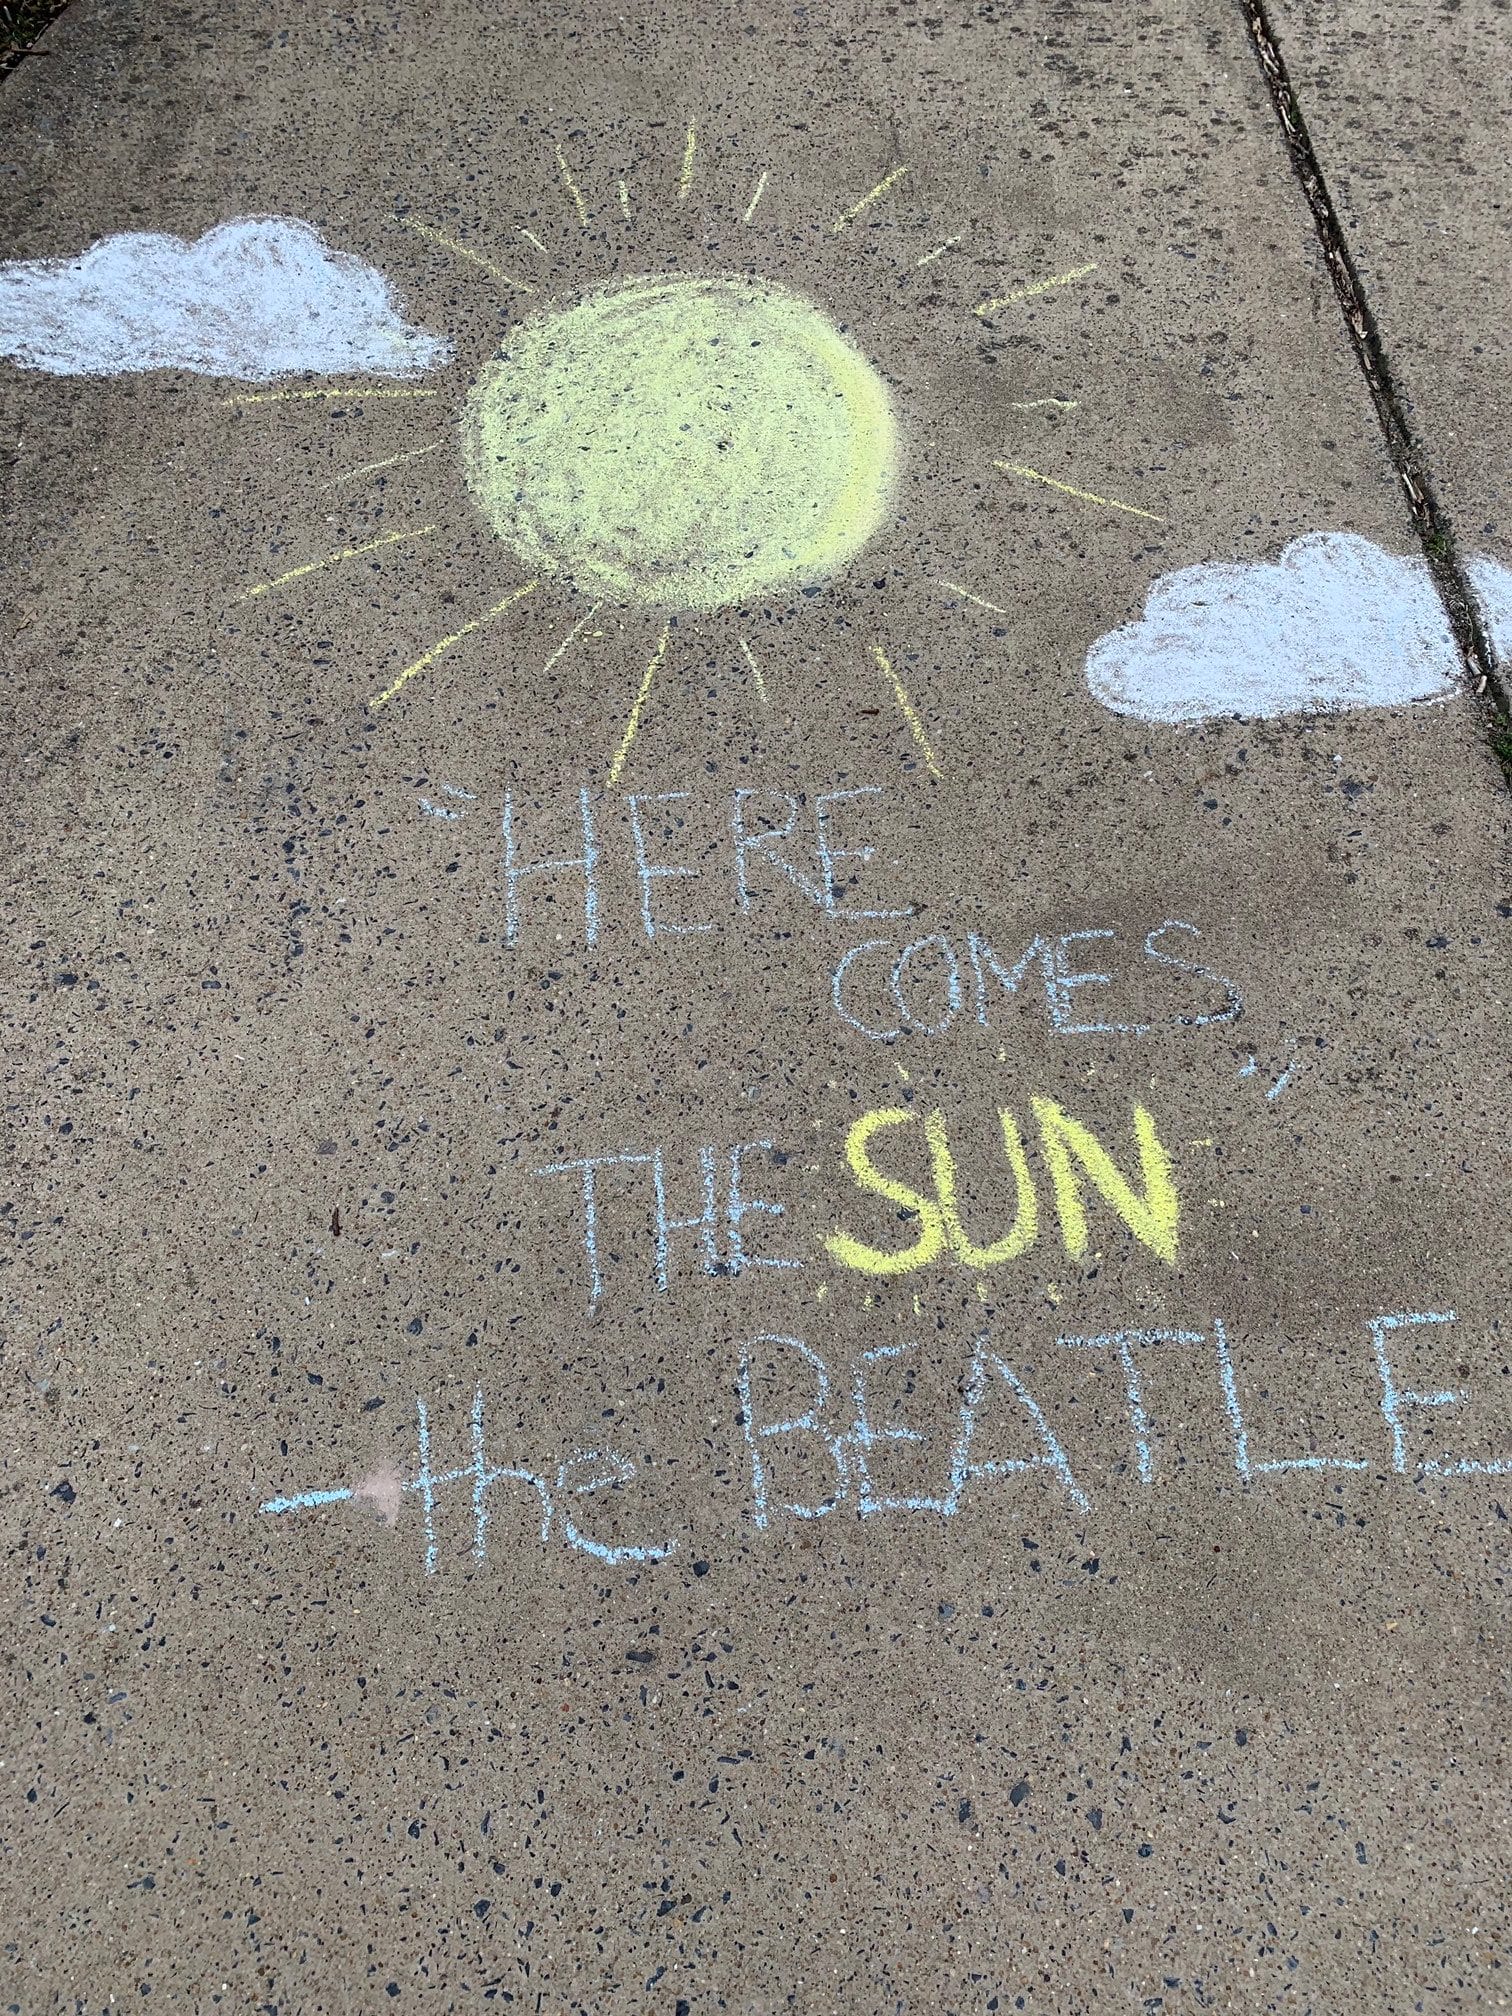 "HERE
COMES
THE SUN"
- the BEATLE